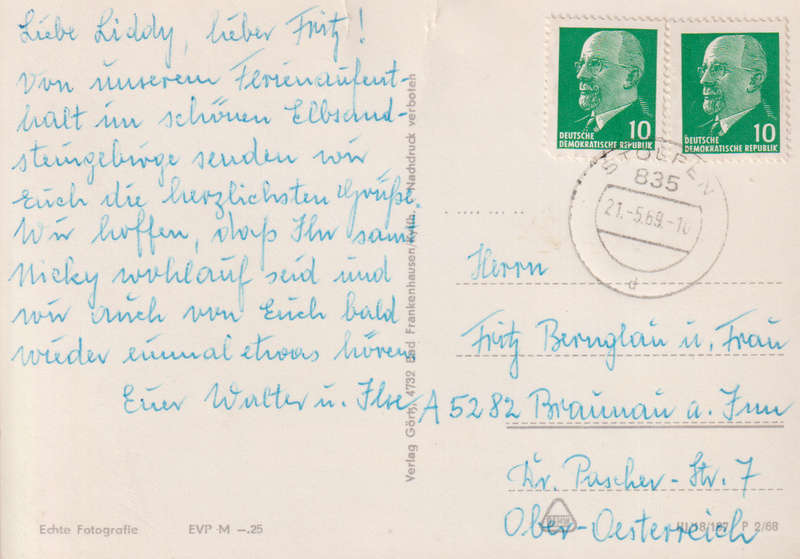 Liebe Liddy, lieber Fritz!
Von unserem Ferienaufent-
halt im schönen Elbsand-
steingebirge senden wir
Euch die herzlichsten Grüße.
Wir hoffen, daß Ihr samt
Nicky wohlauf seid und
wir auch von Euch bald
wieder einmal etwas hören
Euer Walter u. Ilse
Echte Fotografie EVP M –.25
Verlag Görtz, 4732 Bad Frankenhausen/Kyffh. Nachdruck verboten
10
DEUTSCHE
DEMOKRATISCHE REPUBLIK
10
DEUTSCHE
DEMOKRATISCHE REPUBLIK
STOLPEN
835
21.-5.69.-10
d
Herrn
Fritz Bernglau u. Frau
A 5282 Braunau a. Inn
Dr. Puscher-Str. 7
Ober-Oesterreich
P 2/68